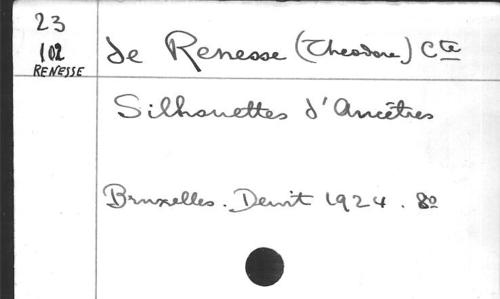 23
102
RENESSE
de Renesse (Theodore) Cte
Silhouettes d'Ancêtres
Bruxelles. Dewit 1924. 8o